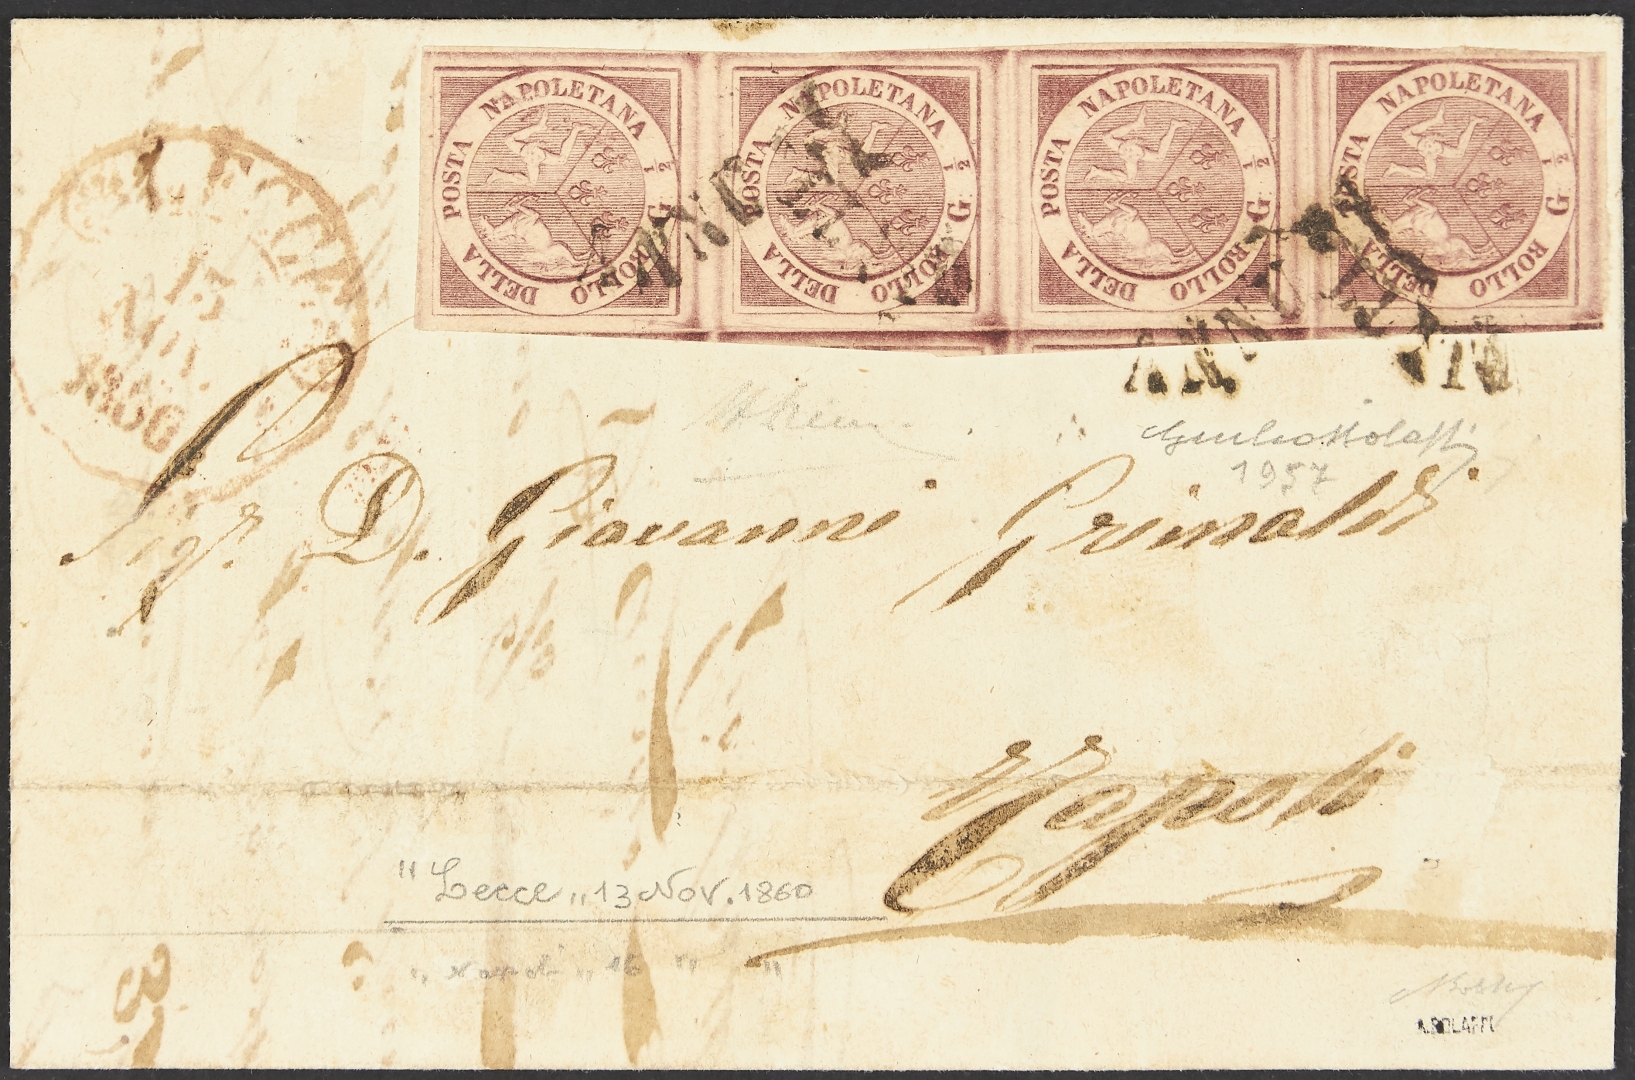 POSTA NAPOLETANA G 1/2 BOLLO DELLA
POSTA NAPOLETANA G 1/2 BOLLO DELLA
POSTA NAPOLETANA G 1/2 BOLLO DELLA
POSTA NAPOLETANA G 1/2 BOLLO DELLA
ANNULLATO
ANNULLATO
LECCE
13
NOV.
1860
Giulio Bolaffi
1957
Sigr. D. Giovanni Grimaldi
Napoli
"Lecce" 13 Nov. 1860
" Napoli " 16 " "
A.BOLAFFI